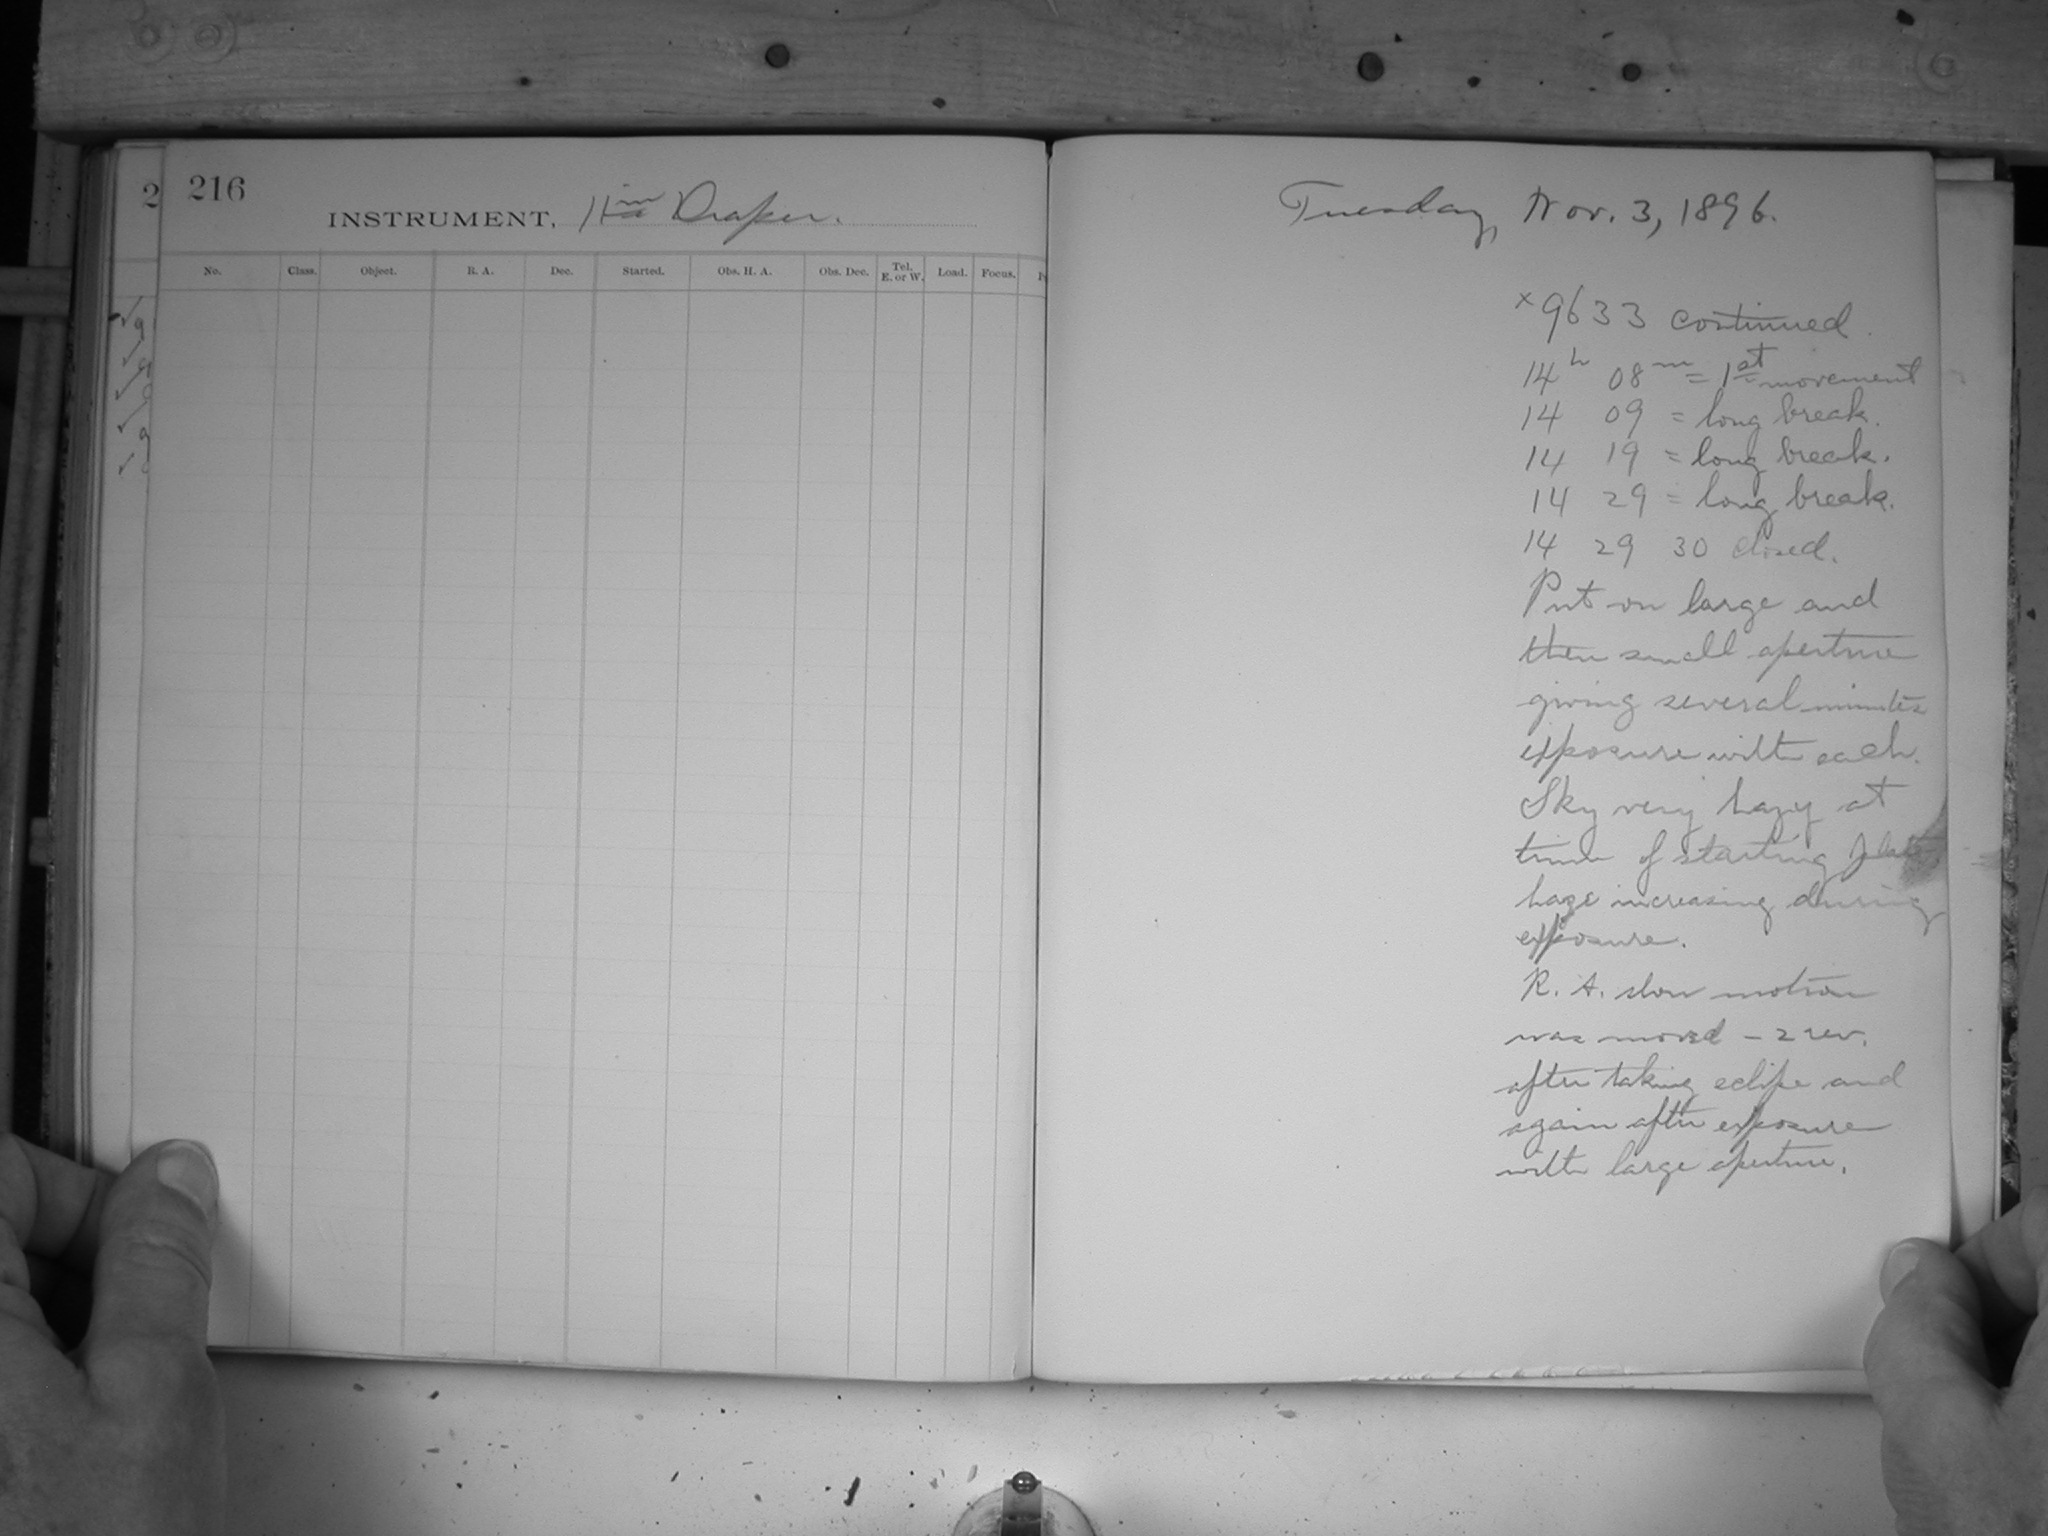 2
216
INSTRUMENT, 11in Draper.
No. Class. Object. R. A. Dec. Started. Obs. H. A. Obs. Dec. Tel. E. or W. Load. Focus.
Tuesday, Nov. 3, 1896.
x 9633 continued
14h 08m = 1st movement
14 09 = long break.
14 19 = long break.
14 29 = long break.
14 29 30 closed.
Put on large and
then small aperture
giving several minutes
exposure with each.
Sky very hazy at
time of starting plate
haze increasing during
exposure.
R. A. slow motion
was moved – 2 rev.
after taking eclipe and
again after exposure
with large aperture.